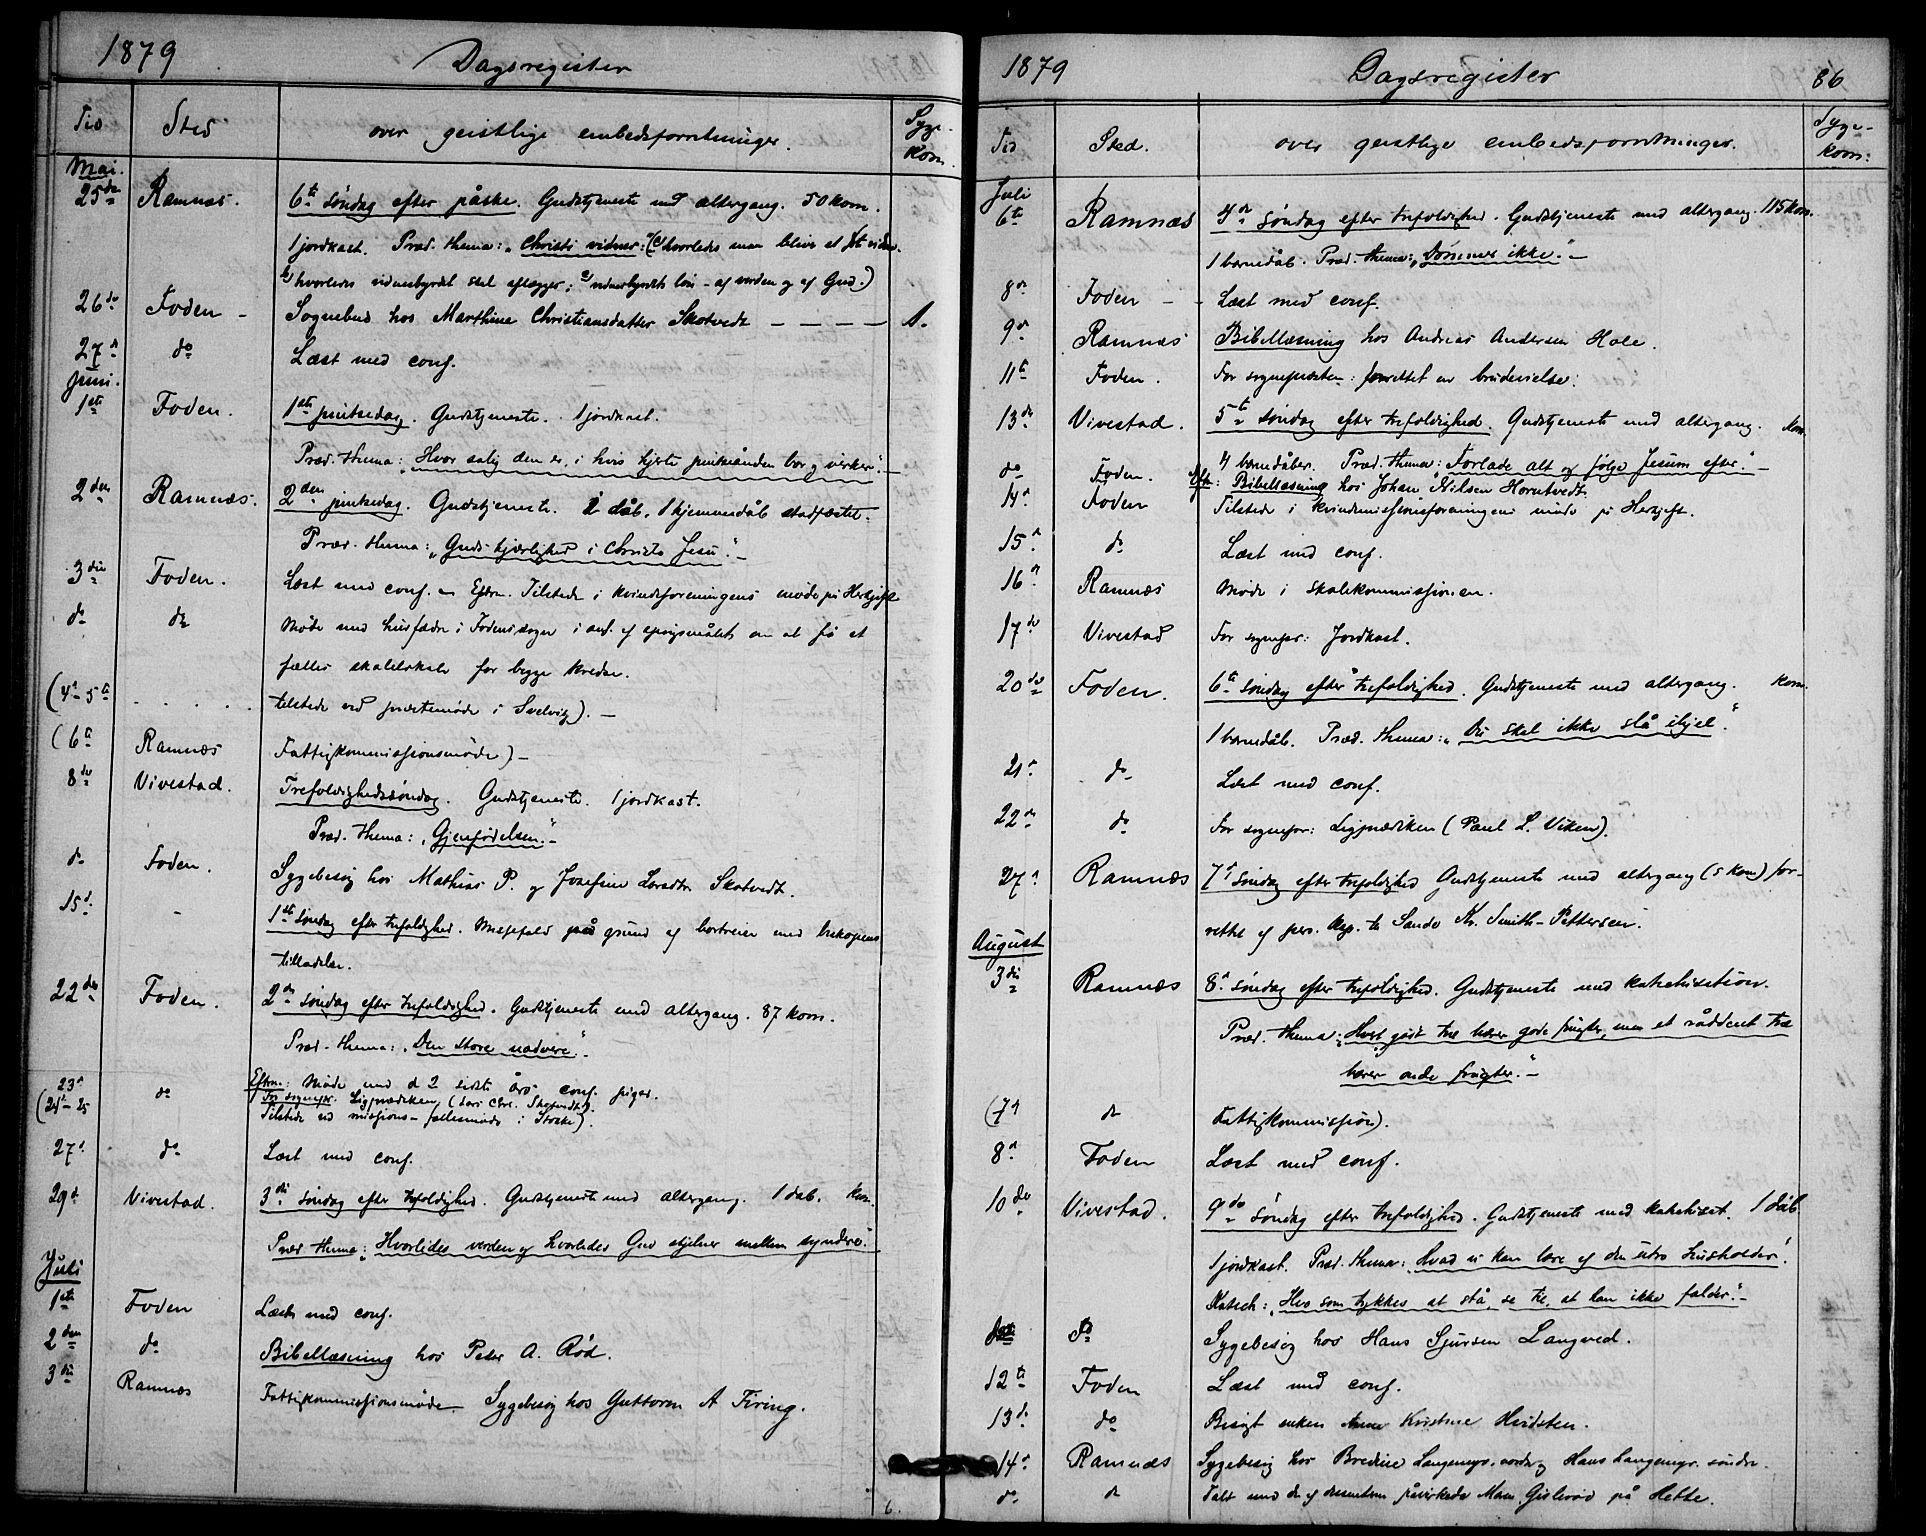 1879 Dagsregister
Tid Sted over geistlige embedsforretninger. Syge-
kom.
Mai.
25de Ramnæs. 6te søndag efter påske. Gudstjeneste med altergang. 50 kom.
1 jordkast. Præd. thema: „Christi vidner: (hvorledes man bliver et
hvorledes vidnesbyrdet skal aflægges; vidnesbyrdets løn – af verden og af Gud.)
26de Foden – Sognebud hos Marthine Christiansdatter Skotvedt – – – – 1.
27de do Læst med conf.
Juni.
1ste Foden. 1ste pintsedag. Gudstjeneste. 1 jordkast.
Præd. thema: „Hvor salig den er, i hvis hjerte pintseånden bor og virker.“ –
2den Ramnæs. 2den pintsedag. Gudstjeneste. 2 dåb, 1 hjemmedåb stadfæstet.
Præd. thema: „Guds kjærlighed i Christo Jesu“. –
3die Foden. Læst med conf. – Eftm. Tilstede i kvindeforeningens møde på Herkjeft
do do Møde med husfædre i Fodens sogn i anl. af spørgsmålet om at få et
fælles skolelokale for begge kredse.
(4de–5te . . . . . tilstede ved præstemøde i Svelvig). –
(6te Ramnæs Fattigkommissionsmøde) –
8de Vivestad. Trefoldighedssøndag. Gudstjeneste. 1 jordkast.
Præd. thema: „Gjenfødelsen.“ –
do Foden. Sygebesøg hos Mathias P. og Josefine Larsdtr. Skotvedt.
15de – 1ste søndag efter trefoldighed. Messefald på grund af bortreise med biskopens
tilladelse.
22de Foden. 2den søndag efter trefoldighed. Gudstjeneste med altergang. 87 kom.
Præd. thema: „Den store nadvere“.
Eftm.: Møde med d 2 sidste års conf. piger.
23de do For sognepr. Ligprædiken (Lars Chr.
(24de–25 Tilstede ved missions-fællesmøde i Stokke).
27de do Læst med conf.
29de Vivestad. 3die søndag efter trefoldighed. Gudstjeneste med altergang. 1 dåb. kom.
Præd. thema: „Hvorledes verden og hvorledes Gud skjelner mellem syndere“
Juli
1ste Foden Læst med conf.
2den do Bibellæsning hos Peder A. Rød.
3die Ramnæs Fattigkommissionsmøde. Sygebesøg hos Guttorm A Firing.
6.
1879 Dagsregister 86
Tid Sted. over geistlige embedsforretninger. Syge-
kom:
Juli
6te Ramnæs 4de søndag efter trefoldighed. Gudstjeneste med altergang. 115 kom.
1 barnedåb. Præd. thema: „Dømmer ikke.“ –
8de Foden – Læst med conf.
9de Ramnæs Bibellæsning hos Andreas Andersen Hole.
11te Foden. For sognepræsten: forrettet en brudevielse.
13de Vivestad. 5te søndag efter trefoldighed. Gudstjeneste med altergang. kom.
4 barnedåber. Præd. thema: „Forlade alt og følge Jesum efter.“ –
do Foden. Eft.: Bibellæsning hos Johan Nilsen Horntvedt.
14de Foden Tilstede i kvindemissionsforeningens møde på Herkjeft.
15de do Læst med conf.
16de Ramnæs Møde i skolekommissionen.
17de Vivestad For sognepr: Jordkast.
20de Foden. 6te søndag efter trefoldighed. Gudstjeneste med altergang. kom.
1 barnedåb. Præd. thema: „Du skal ikke slå ihjel“.
21de do Læst med conf.
22de do For sognepr: Ligprædiken (Paul L. Viken).
27de Ramnæs 7de søndag efter trefoldighed Gudstjeneste med altergang (5 kom) for-
rettet af pers. kap. til Sande Kr. Smith-Pettersen.
August
3die Ramnæs 8de søndag efter trefoldighed. Gudstjeneste med katekisation.
Præd. thema: „Hvert godt træ bærer gode frugter, men et råddent træ
bærer onde frugter“. –
(7de do Fattigkommission).
8de Foden Læst med conf.
10de Vivestad. 9de søndag efter trefoldighed. Gudstjeneste med katekisat. 1 dåb
1 jordkast. Præd. thema: „Hvad vi kan lære af den utro husholder“.
Katech: „Hvo som tykkes at stå, se til, at han ikke falder.“ –
do do Sygebesøg hos Hans Sjursen Langved.
12te Foden Læst med conf.
13de do Besøgt enken Anne Kristine Hvidsten.
14de Ramnæs Sygebesøg hos Bredine Langemyr, nordre, og Hans Langemyr søndre.
do do Talt med de af påvirkede Maren Gislerød på Hotte.